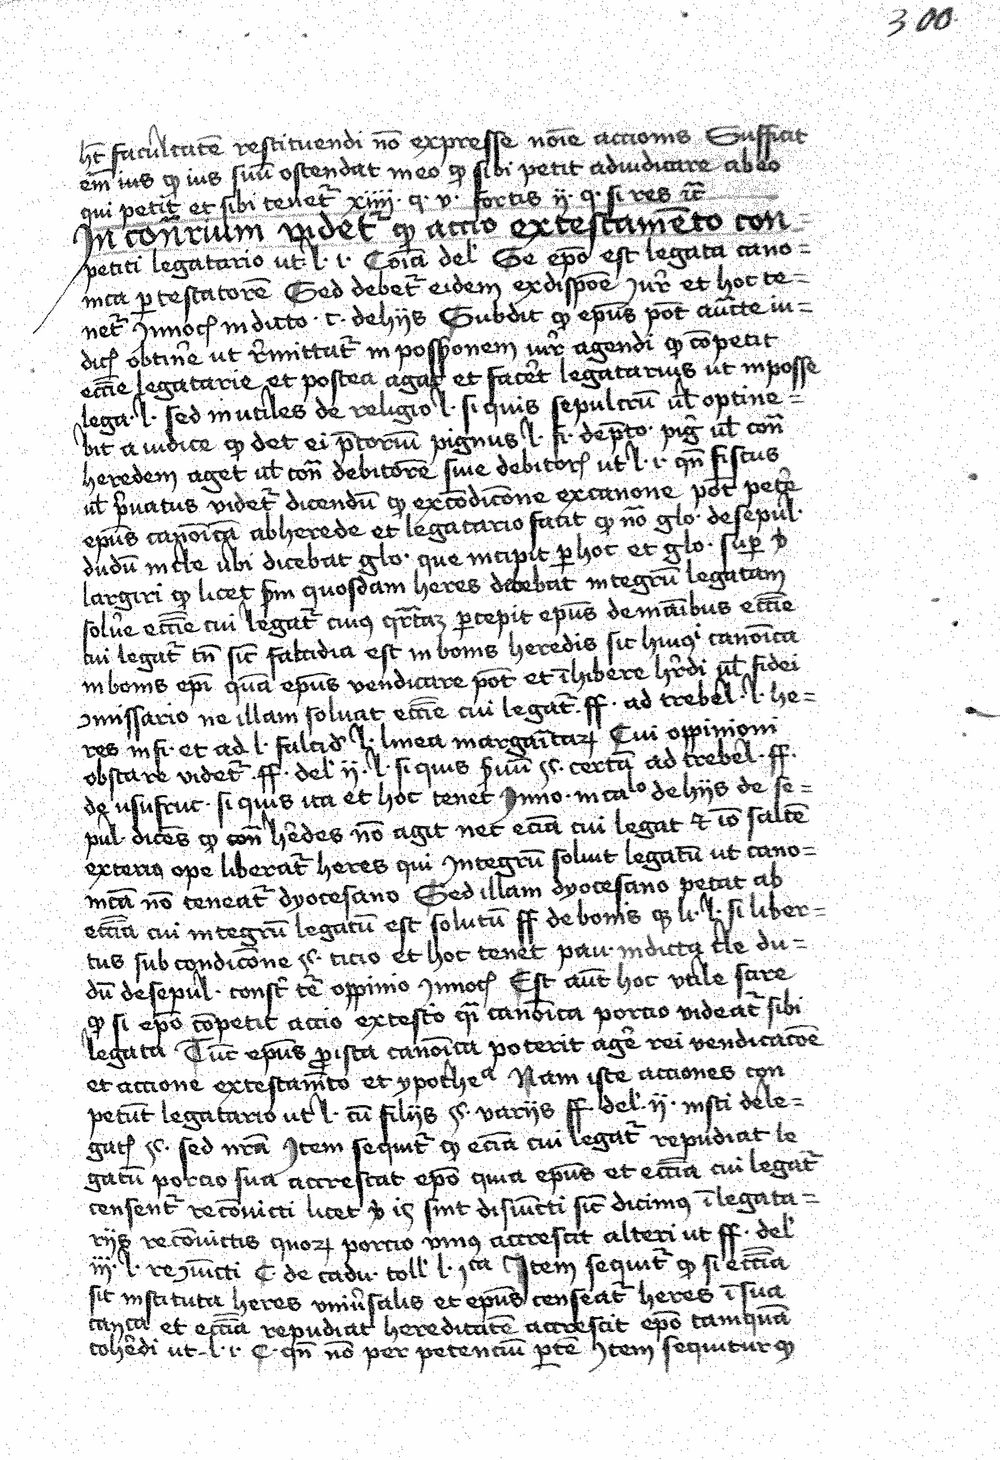 300
ht̄ facultatē restituendi nō expresse noīe accionis Sufficit
em̄ ius qd ius suū ostendat in eo qd sibi petit adiudicare ab eo
qui petit et sibi tenet̄ xiiii. q. v. fortis ij. q. si res
In con̄rium videt̄ qd accio ex testamēto con=
petiti legatario ut l. i. Coīa del Se epō est legata cano=
nica p testatorē Sed debet̄ eidem ex dispoē iur̄ et hoc te=
net̄ Innoc̄ in dicto . c. de hiis Subdit qd epūs pōt aūcte iu=
dic̄ obtinēe ut r̄mittat̄ in possōnem iur̄ agendi qd cōpetit
eccīe legatarie et postea agat et facēt legatarius ut in posse
lega. l. sed inutiles de religio l. si quis sepulcrū ul optine=
bit a iudice qd det ei p̄toriū pignus l. fi. de p̄to. piḡ ul con̄
heredem aget ul con̄ debitorē siue debitor̄ ut l. i. qn̄ fiscus
ul p̄uatus videt̄ dicendū qd ex cōdicōne ex canone pōt petēe
epūs canōicā ab herede et legatario facit qd nō glo. de sepul.
dudū in cle ubi dicebat glo. que incipit p hoc et glo. sup v
largiri qd licet scdm quosdam heres debebat integrū legatam
soluēe eccīe cui legat̄ cuiꝯ qrtaꝝ percepit epūs de manibus eccīe
cui legat̄ tn̄ sic̄ falcidia est in bonis heredis sic huiꝯi canōica
in bonis epī quā epūs vendicare pōt et īhibere hr̄di ul fidei
ꝯmissario ne illam soluat eccīe cui legat̄. ff. ad trebel. l. he=
res in fi. et ad l. falcid. l. linea margaītaꝝ Cui oppinioni
obstare videt̄. ff. del ij. l. si quis s̄uū §. certā ad trebel. ff.
de usufruc. si quis ita et hoc tenet Inno. in ca° de hiis de se=
pul. dicēs qd con̄ hēdes nō agit nec eccīa cui legat et iō saltē
exterius ope liberat̄ heres qui integrū soluit legatū ut cano=
nicā nō teneat̄ dyocesano Sed illam dyocesano petat ab
eccīa cui integrū legatū est solutū ff de bonis q li. l. si liber=
tus sub condicōne §. ticio et hoc tenet pau. in dicta cle du=
dū de sepul. consī tē oppinio Innoc̄ Est aūt hoc utile scire
qd si epō cōpetit accio ex testō qr̄ canōica porcio videat̄ sibi
legata Tūc epūs pro ista canōica poterit agēe rei vendicacōe
et accione ex testam̄to et ypothe^a Nam iste acciones con
petūt legatario ut l. cū filiis §. variis ff. del. ij. insti de le=
gat̄ §. sed nrā Item sequit̄ qd eccīa cui legat̄ repudiat le
gatū porcio sua accrescat epō quia epūs et eccīa cui legat̄
censent̄ recōiuncti licet v is sint disiūcti sic̄ dicimꝯ ī legata=
riis recōiunctis quoꝝ porcio vniꝯ accrescit alteri ut ff. del
iii. l. reꝯiūcti C de cadu. toll l. ica Item sequit̄ qd si eccīa
sit instituta heres vniūsalis et epūs censeat̄ heres ī sua
canca et eccīa repudiat hereditatē accrescit epō tamquā
cohēdi ut l. i. C. qn̄ nō per petenciū ptē Item sequitur qd